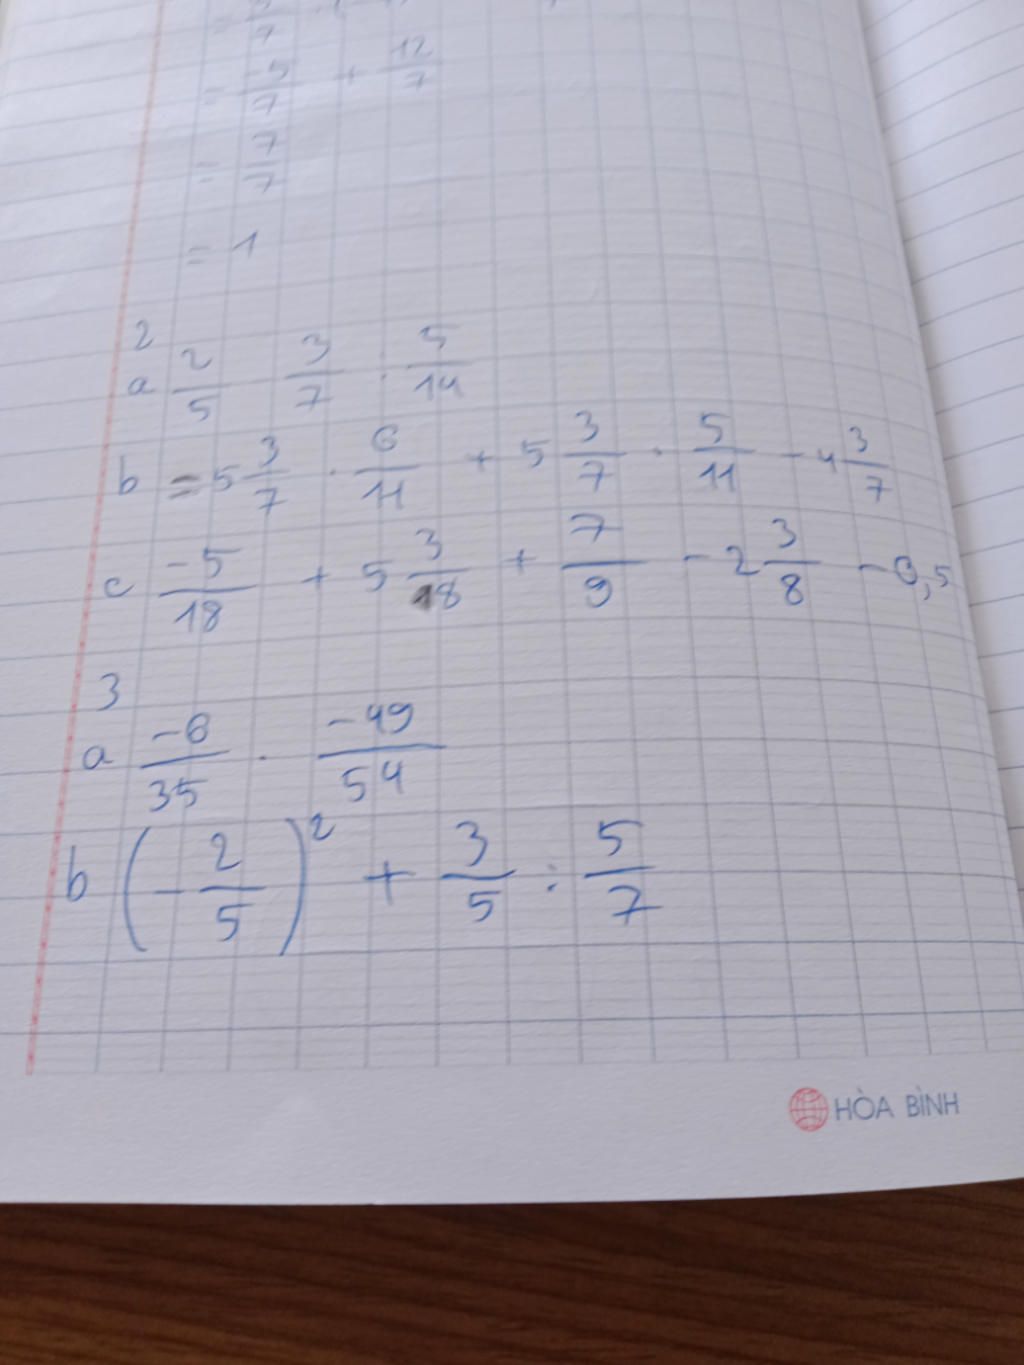 = -5/7 + 12/7
= 7/7
= 1
2
a 2/5 3/7 . 5/14
b = 5 3/7 . 6/11 + 5 3/7 . 5/11 - 4 3/7
c -5/18 + 5 3/18 + 7/9 - 2 3/8 - 0,5
3
a -6/35 . -49/54
b (-2/5)² + 3/5 : 5/7
HÒA BÌNH